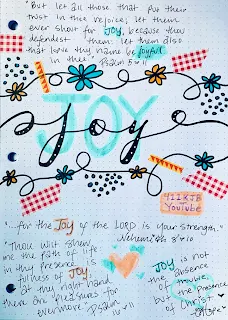 "But let all those that put their
trust in thee rejoice: let them
ever shout for JOY, because thou
defendest them: let them also
that love thy name be joyful
in thee." Psalm 5:11
JOY
joy
411 KJB
YouTube
"...for the Joy of the LORD is your strength."
Nehemiah 8:10
"Thou wilt shew
me the path of life:
in thy presence is
fullness of JOY;
at thy right hand
there are pleasures for
evermore." Psalm
16:11
JOY is not
the absence
of trouble,
but the presence
of Christ.